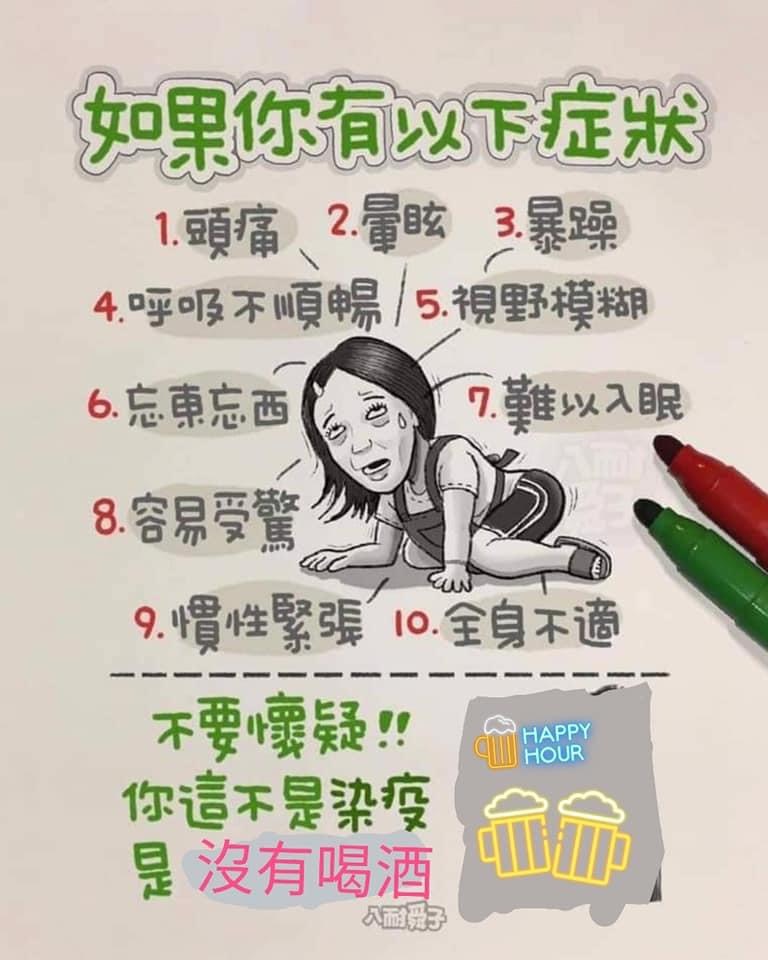 如果你有以下症狀
1.頭痛 2.暈眩 3.暴躁
4.呼吸不順暢 5.視野模糊
6.忘東忘西 7.難以入眠
8.容易受驚
9.慣性緊張 10.全身不適
不要懷疑!!
你這不是染疫
是 沒有喝酒
HAPPY
HOUR
八耐舜子